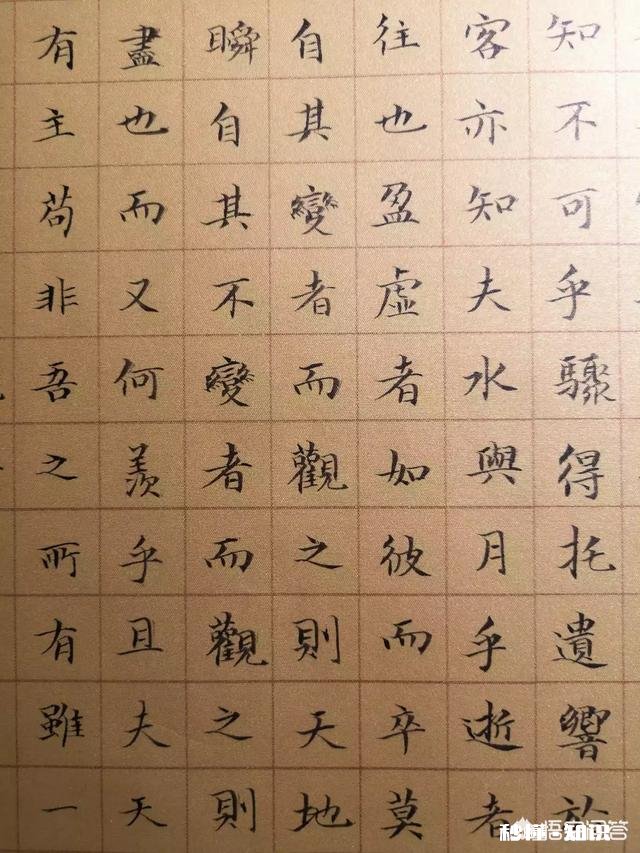 知不可乎驟得托遺響於
客亦知夫水與月乎逝者
往也盈虚者如彼而卒莫
自其變者而觀之則天地
瞬自其不變者而觀之則
盡也而又何羨乎且夫天
有主苟非吾之所有雖一
秒懂·知识